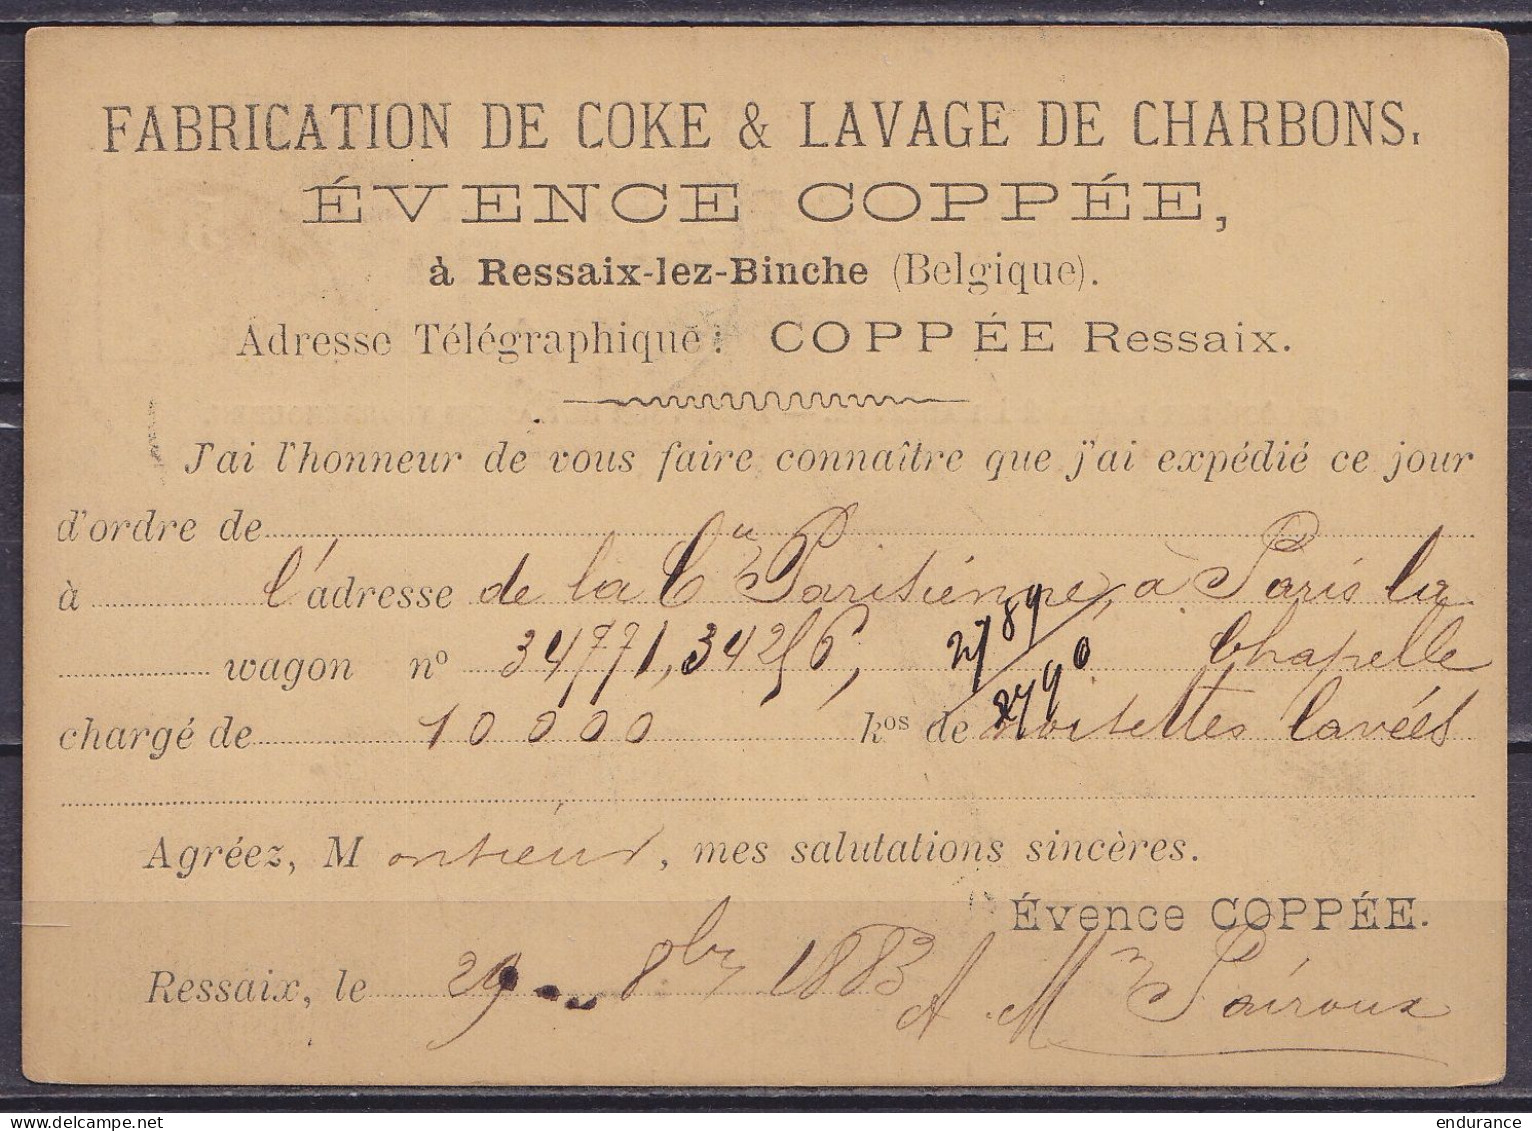 FABRICATION DE COKE & LAVAGE DE CHARBONS.
ÉVENCE COPPÉE,
à Ressaix-lez-Binche (Belgique).
Adresse Télégraphique: COPPÉE Ressaix.
J'ai l'honneur de vous faire connaître que j'ai expédié ce jour
d'ordre de
à l'adresse de la Cie Parisienne, à Paris la
wagon no 34771, 34256, Chapelle
2789
2790
chargé de 10000 kos de noisettes lavées
Agréez, Monsieur, mes salutations sincères.
Évence COPPÉE.
Ressaix, le 29 8bre 1883
endurance